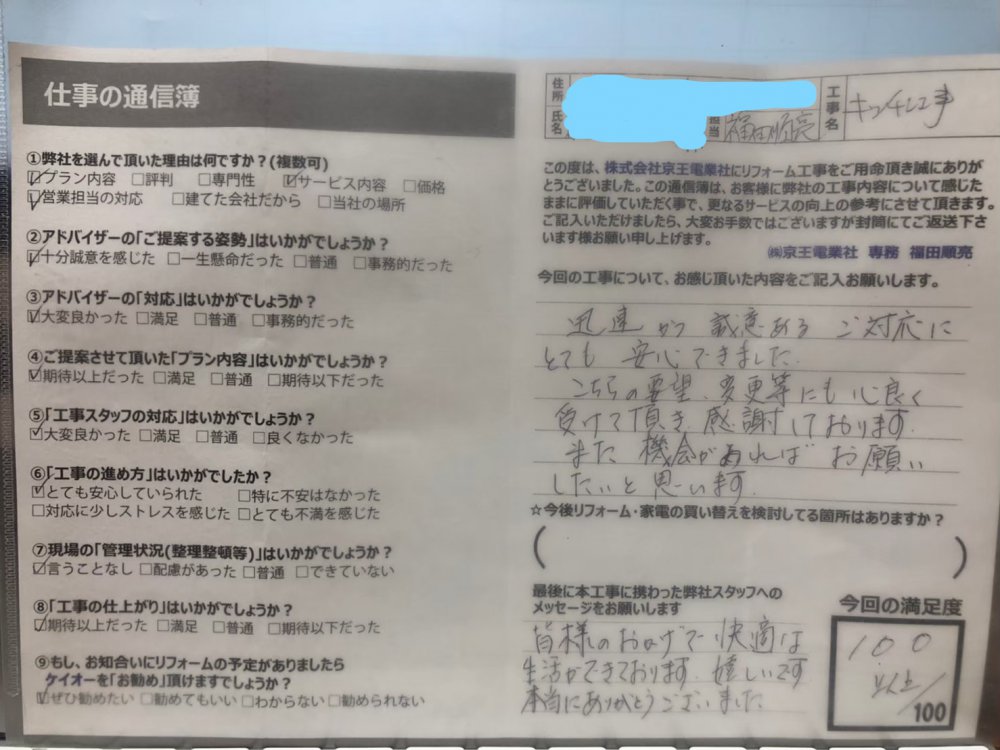 仕事の通信簿
住所
氏名
担当
福田順亮
工事名
キッチン工事
①弊社を選んで頂いた理由は何ですか?(複数可)
☑プラン内容 □評判 □専門性 ☑サービス内容 □価格
☑営業担当の対応 □建てた会社だから □当社の場所
②アドバイザーの「ご提案する姿勢」はいかがでしょうか?
☑十分誠意を感じた □一生懸命だった □普通 □事務的だった
③アドバイザーの「対応」はいかがでしょうか?
☑大変良かった □満足 □普通 □事務的だった
④ご提案させて頂いた「プラン内容」はいかがでしょうか?
☑期待以上だった □満足 □普通 □期待以下だった
⑤「工事スタッフの対応」はいかがでしょうか?
☑大変良かった □満足 □普通 □良くなかった
⑥「工事の進め方」はいかがでしたか?
☑とても安心していられた □特に不安はなかった
□対応に少しストレスを感じた □とても不満を感じた
⑦現場の「管理状況(整理整頓等)」はいかがでしょうか?
☑言うことなし □配慮があった □普通 □できていない
⑧「工事の仕上がり」はいかがでしょうか?
☑期待以上だった □満足 □普通 □期待以下だった
⑨もし、お知合いにリフォームの予定がありましたら
ケイオーを「お勧め」頂けますでしょうか?
☑ぜひ勧めたい □勧めてもいい □わからない □勧められない
この度は、株式会社京王電業社にリフォーム工事をご用命頂き誠にありが
とうございました。この通信簿は、お客様に弊社の工事内容について感じた
ままに評価していただく事で、更なるサービスの向上の参考にさせて頂きます。
ご記入いただけましたら、大変お手数ではございますが封筒にてご返送下さ
います様お願い申し上げます。
㈱京王電業社 専務 福田順亮
今回の工事について、お感じ頂いた内容をご記入お願いします。
迅速かつ誠意あるご対応に
とても安心できました.
こちらの要望、変更等にも心良く
受けて頂き、感謝しております.
また機会があればお願い
したいと思います.
☆今後リフォーム・家電の買い替えを検討してる箇所はありますか?
( )
最後に本工事に携わった弊社スタッフへの
メッセージをお願いします
皆様のおかげで快適な
生活ができております. 嬉しいです
本当にありがとうございました
今回の満足度
100
以上/
100